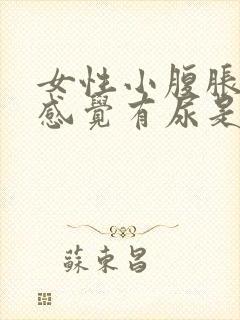 女性小腹脹
感覺有尿是
蘇東昌